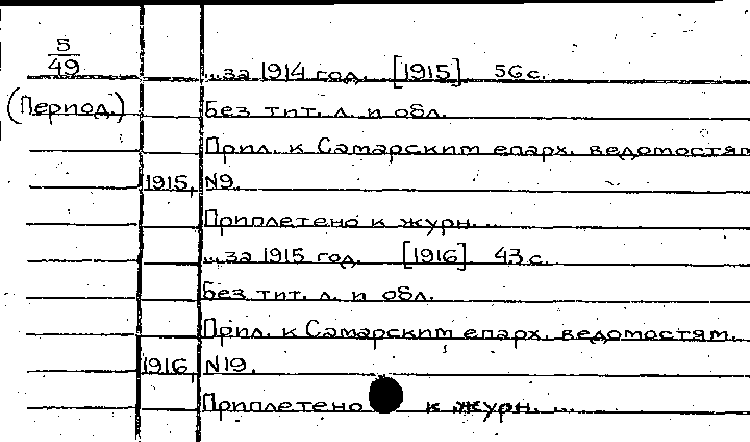 5
49
...за 1914 год. [1915] 56 с.
(Период.) Без тит. л. и обл.
Прил. к Самарским епарх. ведомостям
1915, N9.
Приплетено к журн. ...
...за 1915 год. [1916]. 43 с.
Без тит. л. и обл.
Прил. к Самарским епарх. ведомостям.
1916, N19.
Приплетено к журн. ...